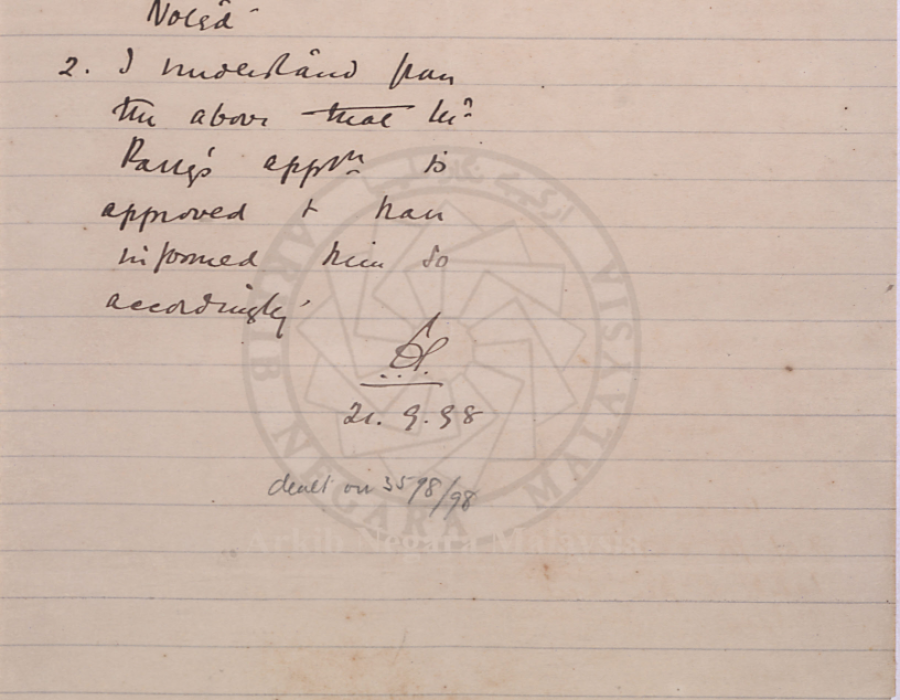 Noted
2. I understand from
the above that Mr
Parry's apptmt is
approved & have
informed him so
accordingly
21.9.98
dealt on 3598/98
ARKIB NEGARA MALAYSIA
Arkib Negara Malaysia